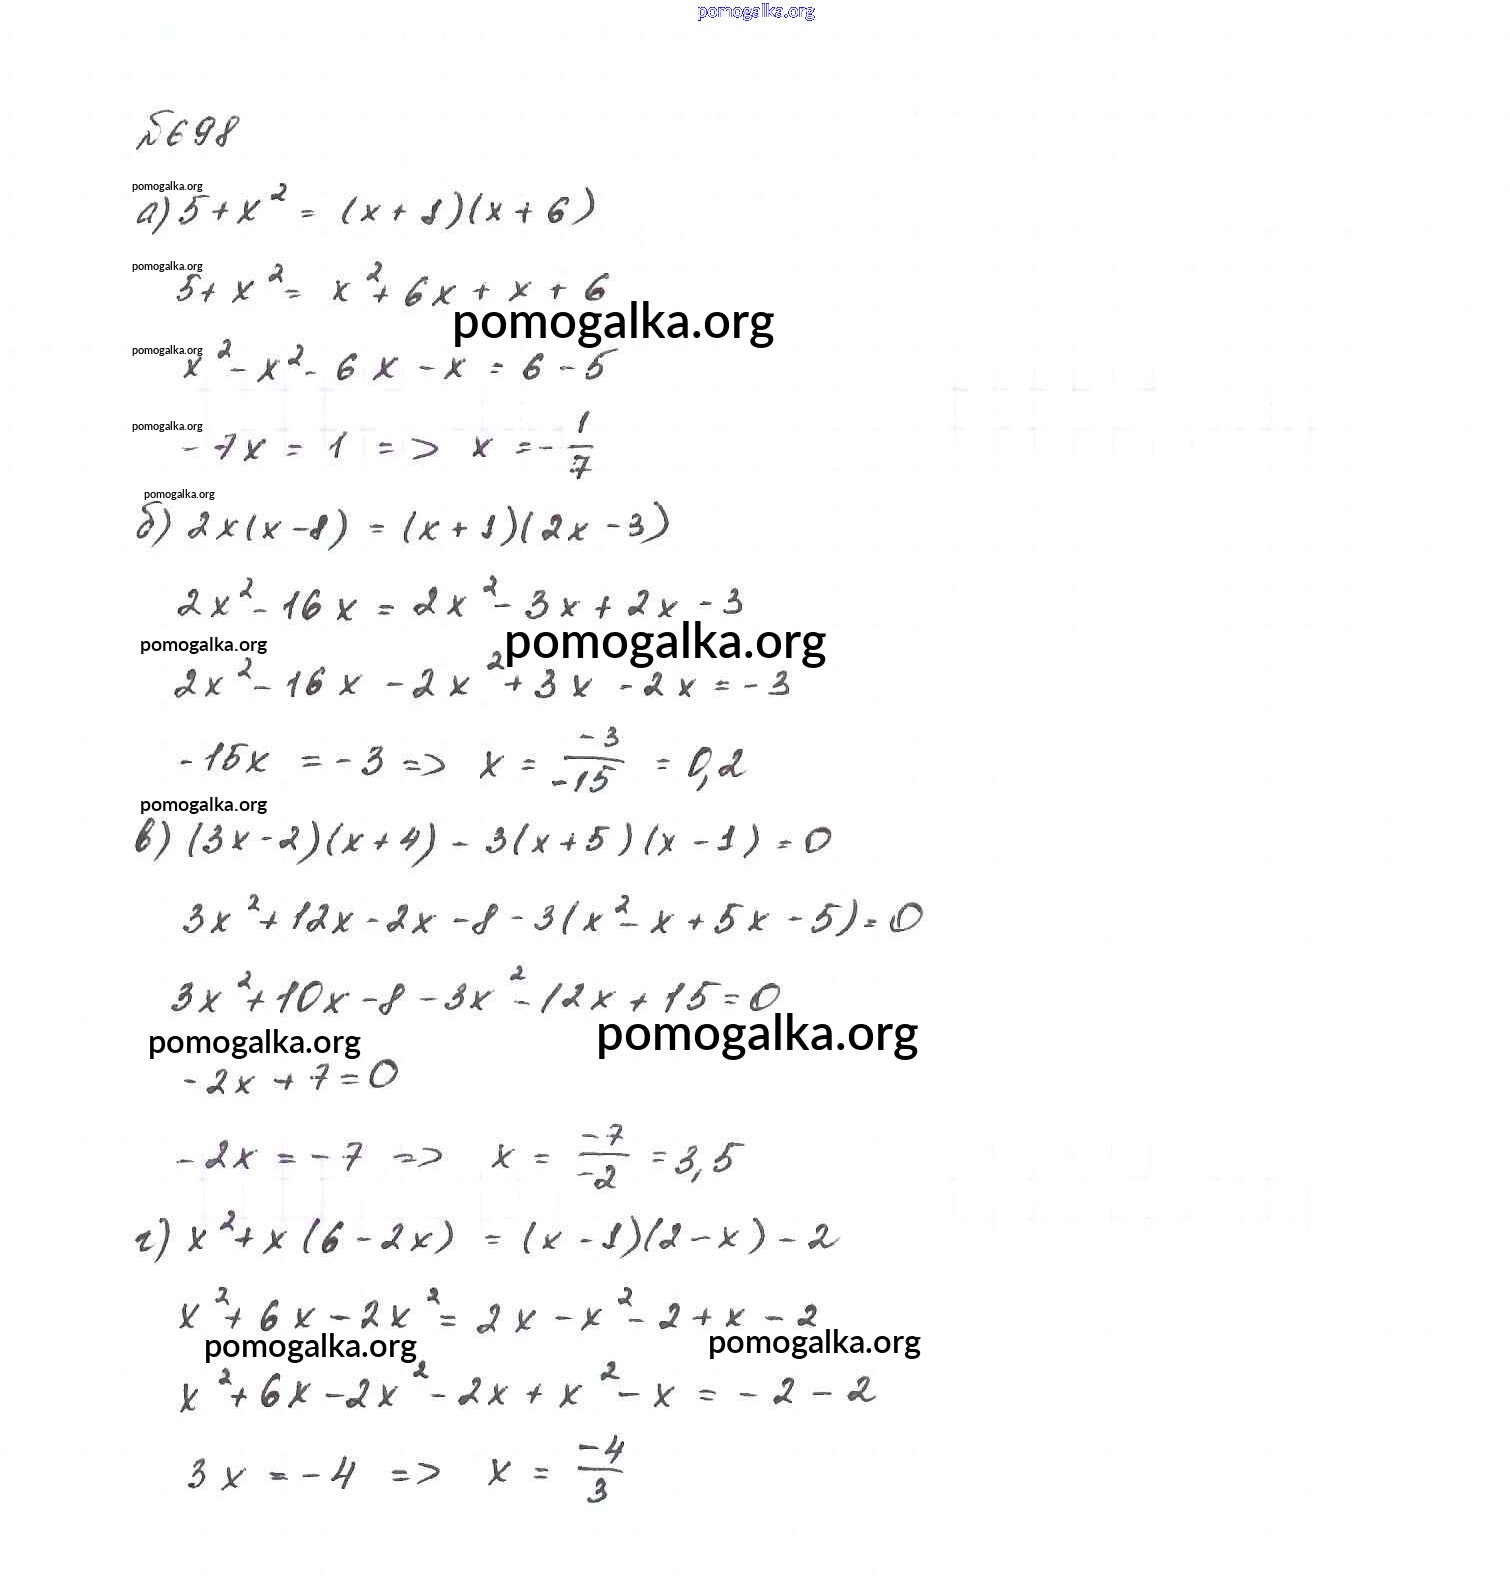 pomogalka.org
№698
pomogalka.org
а) 5 + x² = (x + 1)(x + 6)
pomogalka.org
5 + x² = x² + 6x + x + 6
pomogalka.org
pomogalka.org
x² - x² - 6x - x = 6 - 5
pomogalka.org
- 7x = 1 => x = - 1/7
pomogalka.org
б) 2x(x - 8) = (x + 1)(2x - 3)
2x² - 16x = 2x² - 3x + 2x - 3
pomogalka.org pomogalka.org
2x² - 16x - 2x² + 3x - 2x = - 3
- 15x = - 3 => x = -3/-15 = 0,2
pomogalka.org
в) (3x - 2)(x + 4) - 3(x + 5)(x - 1) = 0
3x² + 12x - 2x - 8 - 3(x² - x + 5x - 5) = 0
3x² + 10x - 8 - 3x² - 12x + 15 = 0
pomogalka.org pomogalka.org
- 2x + 7 = 0
- 2x = - 7 => x = -7/-2 = 3,5
г) x² + x(6 - 2x) = (x - 1)(2 - x) - 2
x² + 6x - 2x² = 2x - x² - 2 + x - 2
pomogalka.org pomogalka.org
x² + 6x - 2x² - 2x + x² - x = - 2 - 2
3x = - 4 => x = -4/3